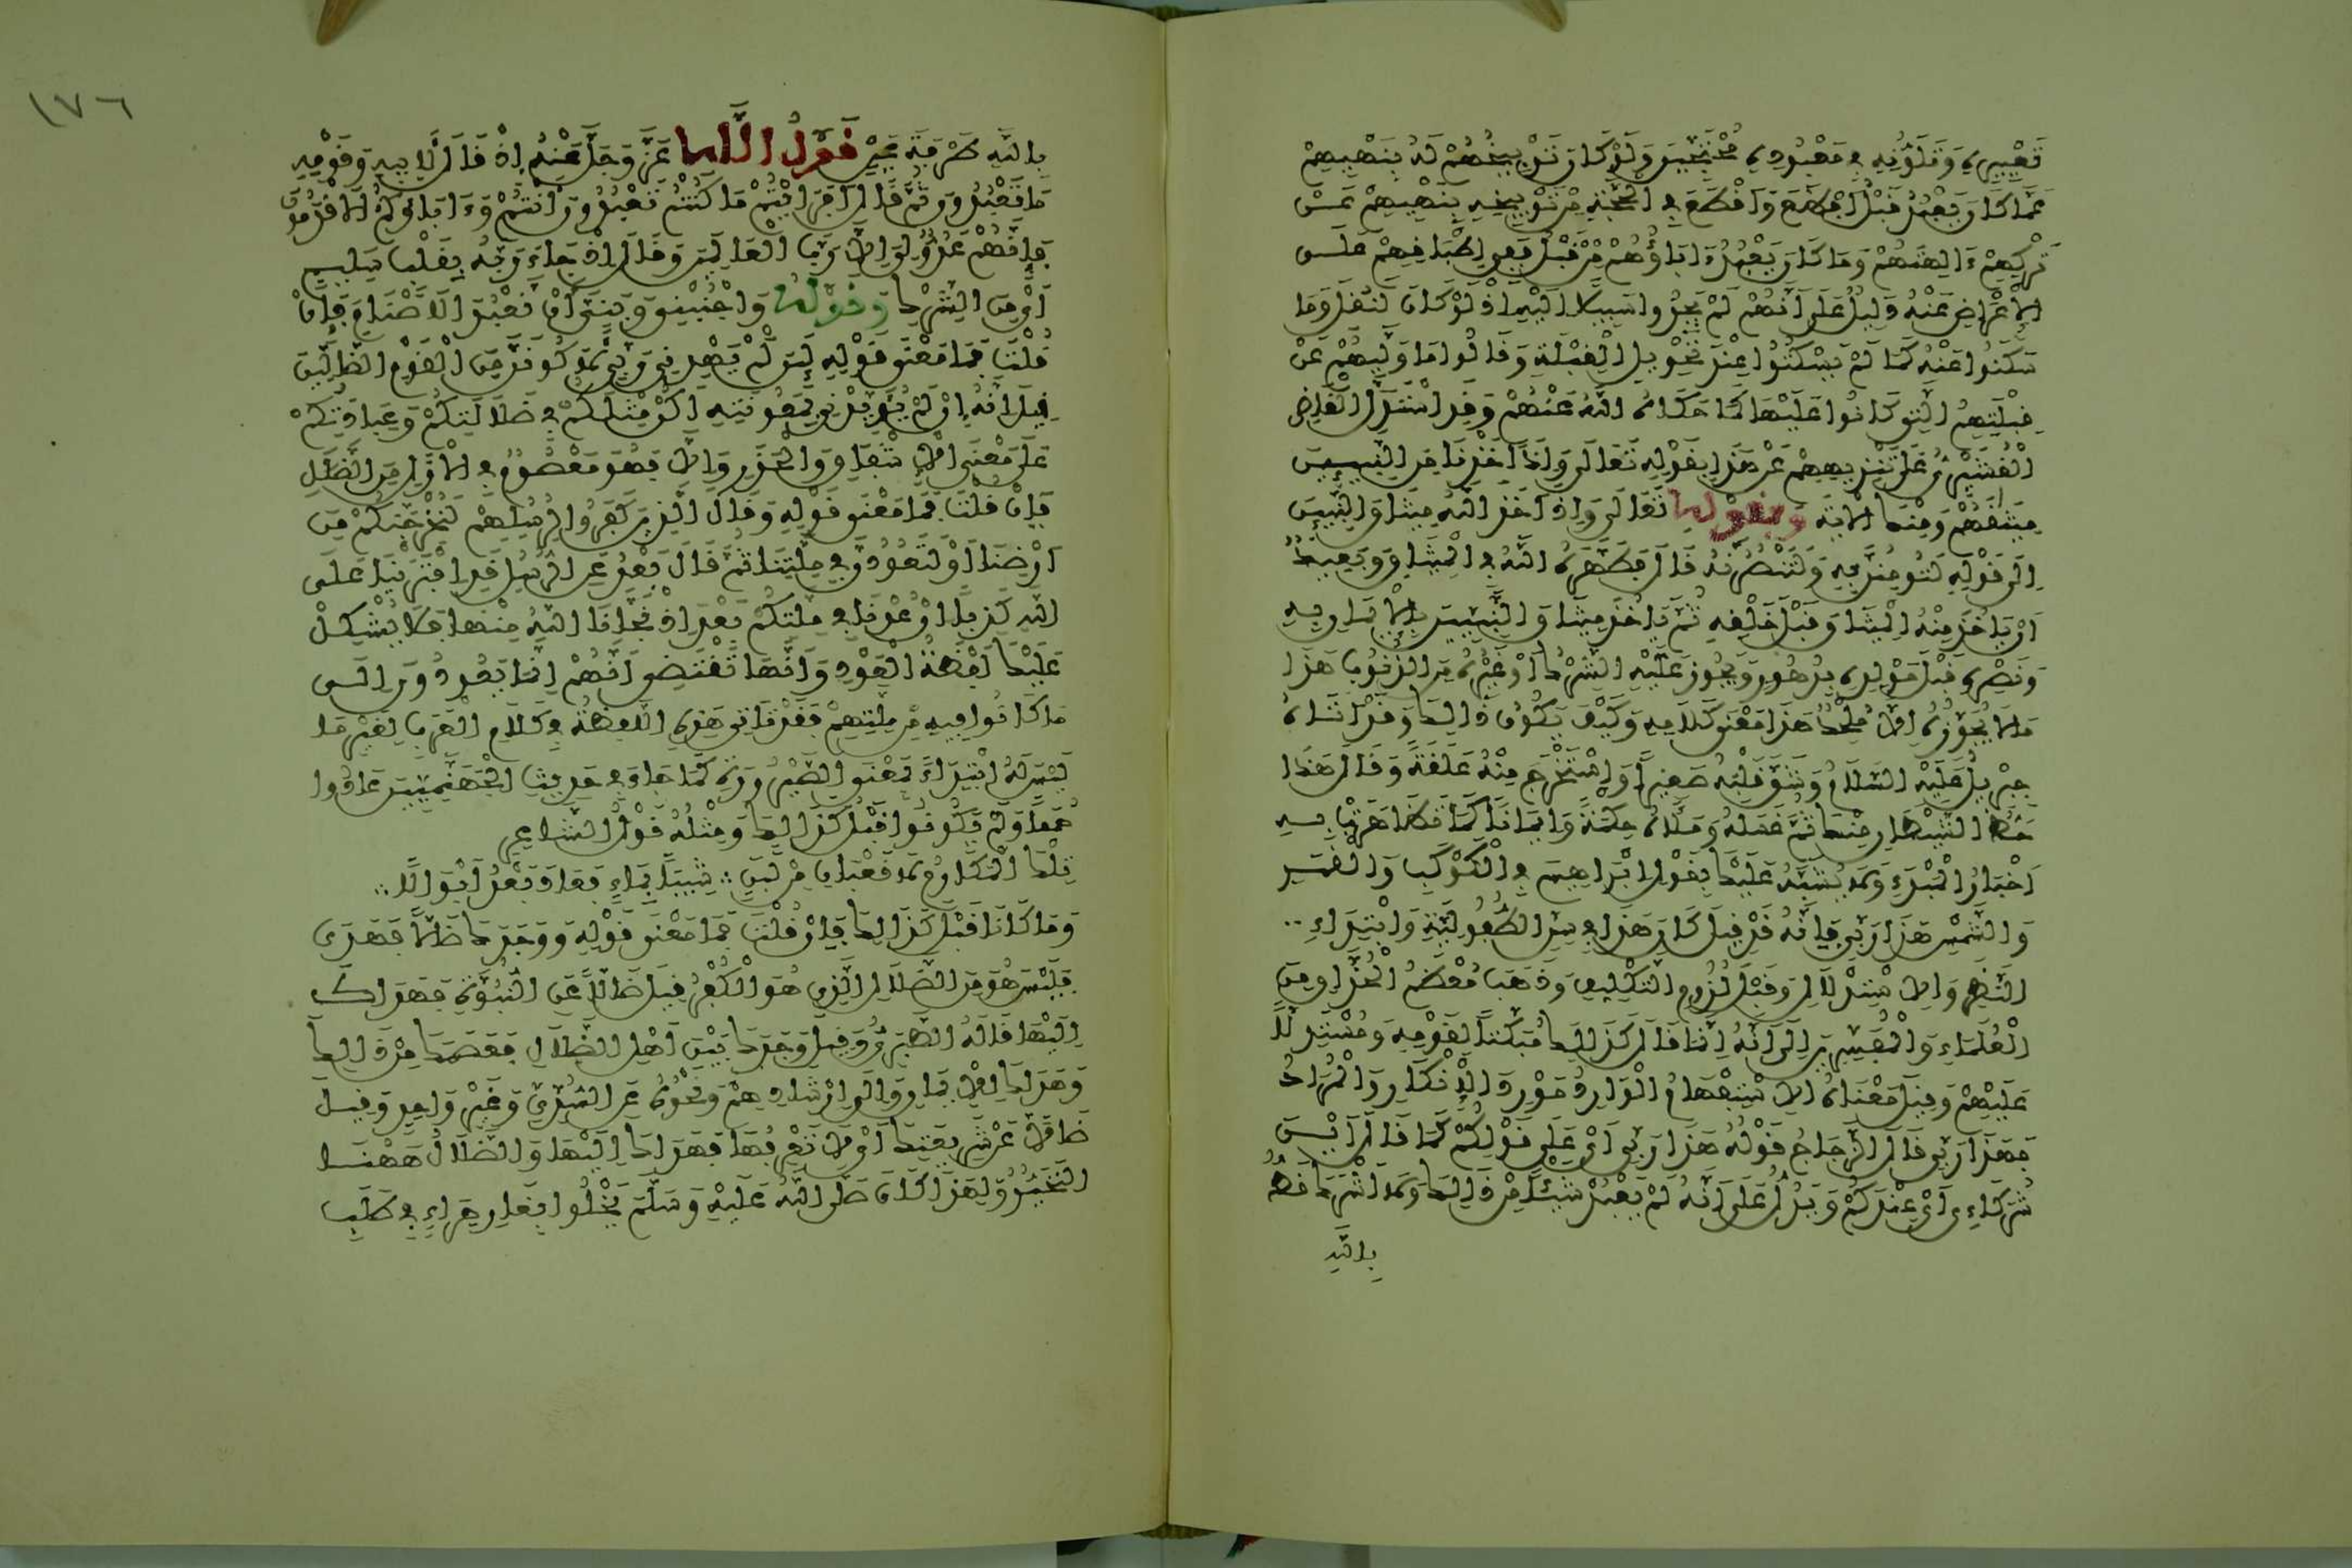 تَعْيِيرِهِ وَتَلَوُّنِهِ فِي مَعْبُودِهِ مُحْتَجِّينَ وَلَوْ كَانَ تَوْبِيخُهُمْ لَهُ بِنَهْيِهِمْ
عَمَّا كَانَ يَعْبُدُ قَبْلُ أَفْظَعَ وَأَقْطَعَ فِي الْحُجَّةِ مِنْ تَوْبِيخِهِ بِنَهْيِهِمْ عَنْ
تَرْكِهِمْ ءَالِهَتَهُمْ وَمَا كَانَ يَعْبُدُ ءَابَاؤُهُمْ مِنْ قَبْلُ فَفِي إِطْبَاقِهِمْ عَلَى
الْإِعْرَاضِ عَنْهُ دَلِيلٌ عَلَى أَنَّهُمْ لَمْ يَجِدُوا سَبِيلًا إِلَيْهِ إِذْ لَوْ كَانَ لَنُقِلَ وَمَا
سَكَتُوا عَنْهُ كَمَا لَمْ يَسْكُتُوا عِنْدَ تَحْوِيلِ الْقِبْلَةِ وَقَالُوا مَا وَلَّيهُمْ عَنْ
قِبْلَتِهِمُ الَّتِي كَانُوا عَلَيْهَا كَمَا حَكَاهُ اللَّهُ عَنْهُمْ وَقَدِ اسْتَدَلَّ الْقَاضِي
الْقُشَيْرِيُّ عَلَى تَنْزِيهِهِمْ عَنْ هَذَا بِقَوْلِهِ تَعَالَى وَإِذْ أَخَذْنَا مِنَ النَّبِيِّينَ
مِيثَاقَهُمْ وَمِنْكَ الْآيَةَ وَبِقَوْلِهِ تَعَالَى وَإِذْ أَخَذَ اللَّهُ مِيثَاقَ النَّبِيِّينَ
إِلَى قَوْلِهِ لَتُومِنُنَّ بِهِ وَلَتَنْصُرُنَّهُ قَالَ فَطَهَّرَهُ اللَّهُ فِي الْمِيثَاقِ وَبَعِيدٌ
أَنْ يَاخُذَ مِنْهُ الْمِيثَاقَ قَبْلَ خَلْقِهِ ثُمَّ يَاخُذَ مِيثَاقَ النَّبِيِّينَ بِالْإِيمَانِ بِهِ
وَنَصْرِهِ قَبْلَ مَوْلِدِهِ بِدُهُورٍ وَيَجُوزَ عَلَيْهِ الشِّرْكُ أَوْ غَيْرُهُ مِنَ الذُّنُوبِ هَذَا
مَا لَا يُجَوِّزُهُ إِلَّا مُلْحِدٌ هَذَا مَعْنَى كَلَامِهِ وَكَيْفَ يَكُونُ ذَلِكَ وَقَدْ أَتَاهُ
جِبْرِيلُ عَلَيْهِ السَّلَامُ وَشَقَّ قَلْبَهُ صَغِيرًا وَاسْتَخْرَجَ مِنْهُ عَلَقَةً وَقَالَ هَذَا
حَظُّ الشَّيْطَانِ مِنْكَ ثُمَّ غَسَلَهُ وَمَلَأَهُ حِكْمَةً وَإِيمَانًا كَمَا تَظَاهَرَتْ بِهِ
أَخْبَارُ الْمَبْدَإِ وَلَا يُشَبَّهُ عَلَيْكَ بِقَوْلِ إِبْرَاهِيمَ فِي الْكَوْكَبِ وَالْقَمَرِ
وَالشَّمْسِ هَذَا رَبِّي فَإِنَّهُ قَدْ قِيلَ كَانَ هَذَا فِي سِنِّ الطُّفُولِيَّةِ وَابْتِدَاءِ
النَّظَرِ وَالِاسْتِدْلَالِ وَقَبْلَ لُزُومِ التَّكْلِيفِ وَذَهَبَ مُعْظَمُ الْحُذَّاقِ مِنَ
الْعُلَمَاءِ وَالْمُفَسِّرِينَ إِلَى أَنَّهُ إِنَّمَا قَالَ كَذَلِكَ مُبَكِّتًا لِقَوْمِهِ وَمُسْتَدِلًّا
عَلَيْهِمْ وَقِيلَ مَعْنَاهُ الِاسْتِفْهَامُ الْوَارِدُ مَوْرِدَ الْإِنْكَارِ وَالْمُرَادُ
فَهَذَا رَبِّي قَالَ الزَّجَّاجُ قَوْلُهُ هَذَا رَبِّي أَيْ عَلَى قَوْلِكُمْ كَمَا قَالَ أَيْنَ
شُرَكَاءِي أَيْ عِنْدَكُمْ وَيَدُلُّ عَلَى أَنَّهُ لَمْ يَعْبُدْ شَيْئًا مِنْ ذَلِكَ وَلَا أَشْرَكَ قَطُّ
بِاللَّهِ
١٧٦
بِاللَّهِ طَرْفَةَ عَيْنٍ قَوْلُ اللَّهِ عَزَّ وَجَلَّ عَنْهُ إِذْ قَالَ لِأَبِيهِ وَقَوْمِهِ
مَا تَعْبُدُونَ ثُمَّ قَالَ أَفَرَايْتُمْ مَا كُنْتُمْ تَعْبُدُونَ أَنْتُمْ وَءَابَاؤُكُمُ الْأَقْدَمُونَ
فَإِنَّهُمْ عَدُوٌّ لِي إِلَّا رَبَّ الْعَالَمِينَ وَقَالَ إِذْ جَاءَ رَبَّهُ بِقَلْبٍ سَلِيمٍ
أَيْ مِنَ الشِّرْكِ وَقَوْلُهُ وَاجْنُبْنِي وَبَنِيَّ أَنْ نَعْبُدَ الْأَصْنَامَ فَإِنْ
قُلْتَ فَمَا مَعْنَى قَوْلِهِ لَئِنْ لَمْ يَهْدِنِي رَبِّي لَأَكُونَنَّ مِنَ الْقَوْمِ الضَّالِّينَ
قِيلَ إِنَّهُ إِنْ لَمْ يُؤَيِّدْنِي بِمَعُونَتِهِ أَكُنْ مِثْلَكُمْ فِي ضَلَالَتِكُمْ وَعِبَادَتِكُمْ
عَلَى مَعْنَى الْإِشْفَاقِ وَالْحَذَرِ وَإِلَّا فَهُوَ مَعْصُومٌ فِي الْأَزَلِ مِنَ الضَّلَالِ
فَإِنْ قُلْتَ فَمَا مَعْنَى قَوْلِهِ وَقَالَ الَّذِينَ كَفَرُوا لِرُسُلِهِمْ لَنُخْرِجَنَّكُمْ مِنْ
أَرْضِنَا أَوْ لَتَعُودُنَّ فِي مِلَّتِنَا ثُمَّ قَالَ بَعْدُ عَنِ الرُّسُلِ قَدِ افْتَرَيْنَا عَلَى
اللَّهِ كَذِبًا إِنْ عُدْنَا فِي مِلَّتِكُمْ بَعْدَ إِذْ نَجَّانَا اللَّهُ مِنْهَا فَلَا يُشْكِلْ
عَلَيْكَ لَفْظَةُ الْعَوْدِ وَأَنَّهَا تَقْتَضِي أَنَّهُمْ إِنَّمَا يَعُودُونَ إِلَى
مَا كَانُوا فِيهِ مِنْ مِلَّتِهِمْ فَقَدْ تَاتِي هَذِهِ اللَّفْظَةُ فِي كَلَامِ الْعَرَبِ لِغَيْرِ مَا
لَيْسَ لَهُ ابْتِدَاءٌ بِمَعْنَى الصَّيْرُورَةِ كَمَا جَاءَ فِي حَدِيثِ الْجَهَنَّمِيِّينَ عَادُوا
حُمَمًا وَلَمْ يَكُونُوا قَبْلُ كَذَلِكَ وَمِثْلُهُ قَوْلُ الشَّاعِرِ
تِلْكَ الْمَكَارِمُ لَا قَعْبَانِ مِنْ لَبَنٍ ∴ شِيبَا بِمَاءٍ فَعَادَا بَعْدُ أَبْوَالًا ∴
وَمَا كَانَا قَبْلُ كَذَلِكَ فَإِنْ قُلْتَ فَمَا مَعْنَى قَوْلِهِ وَوَجَدَكَ ضَالًّا فَهَدَى
فَلَيْسَ هُوَ مِنَ الضَّلَالِ الَّذِي هُوَ الْكُفْرُ قِيلَ ضَالًّا عَنِ النُّبُوَّةِ فَهَدَاكَ
إِلَيْهَا قَالَهُ الطَّبَرِيُّ وَقِيلَ وَجَدَكَ بَيْنَ أَهْلِ الضَّلَالِ فَعَصَمَكَ مِنْ ذَلِكَ
وَهَدَاكَ لِلْإِيمَانِ وَإِلَى إِرْشَادِهِمْ وَنَحْوُهُ عَنِ السُّدِّيِّ وَغَيْرِ وَاحِدٍ وَقِيلَ
ضَالًّا عَنْ شَرِيعَتِكَ أَيْ لَا تَعْرِفُهَا فَهَدَاكَ إِلَيْهَا وَالضَّلَالُ هَهُنَا
التَّحَيُّرُ وَلِهَذَا كَانَ صَلَّى اللَّهُ عَلَيْهِ وَسَلَّمَ يَخْلُوا بِغَارِ حِرَاءٍ فِي طَلَبِ